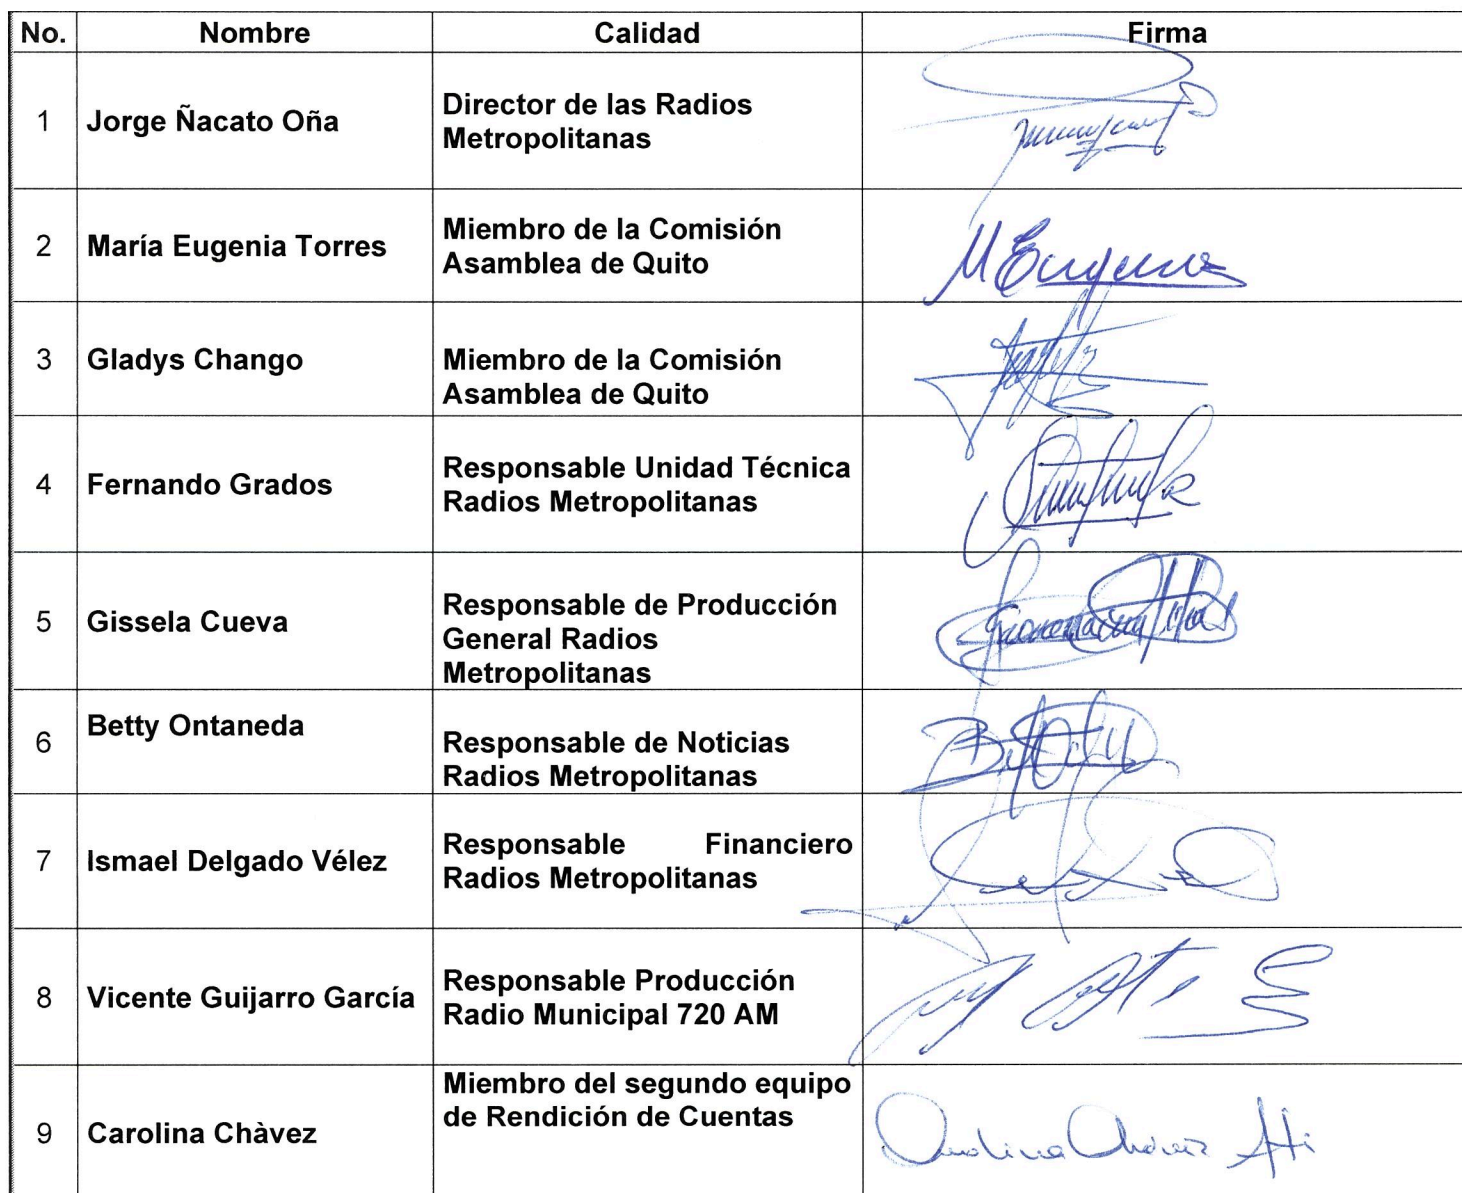 No. Nombre Calidad Firma
1 Jorge Ñacato Oña Director de las Radios
Metropolitanas
2 María Eugenia Torres Miembro de la Comisión
Asamblea de Quito
M Eugenia
3 Gladys Chango Miembro de la Comisión
Asamblea de Quito
4 Fernando Grados Responsable Unidad Técnica
Radios Metropolitanas
5 Gissela Cueva Responsable de Producción
General Radios
Metropolitanas
6 Betty Ontaneda Responsable de Noticias
Radios Metropolitanas
7 Ismael Delgado Vélez Responsable Financiero
Radios Metropolitanas
8 Vicente Guijarro García Responsable Producción
Radio Municipal 720 AM
9 Carolina Chàvez Miembro del segundo equipo
de Rendición de Cuentas
Carolina Chávez Ati